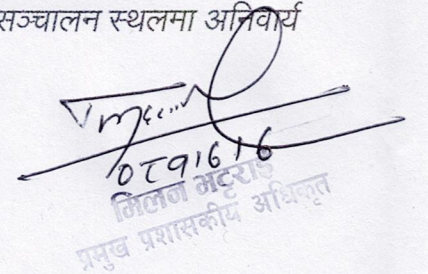 सञ्चालन स्थलमा अनिवार्य
मिलन भट्टराई
प्रमुख प्रशासकीय अधिकृत